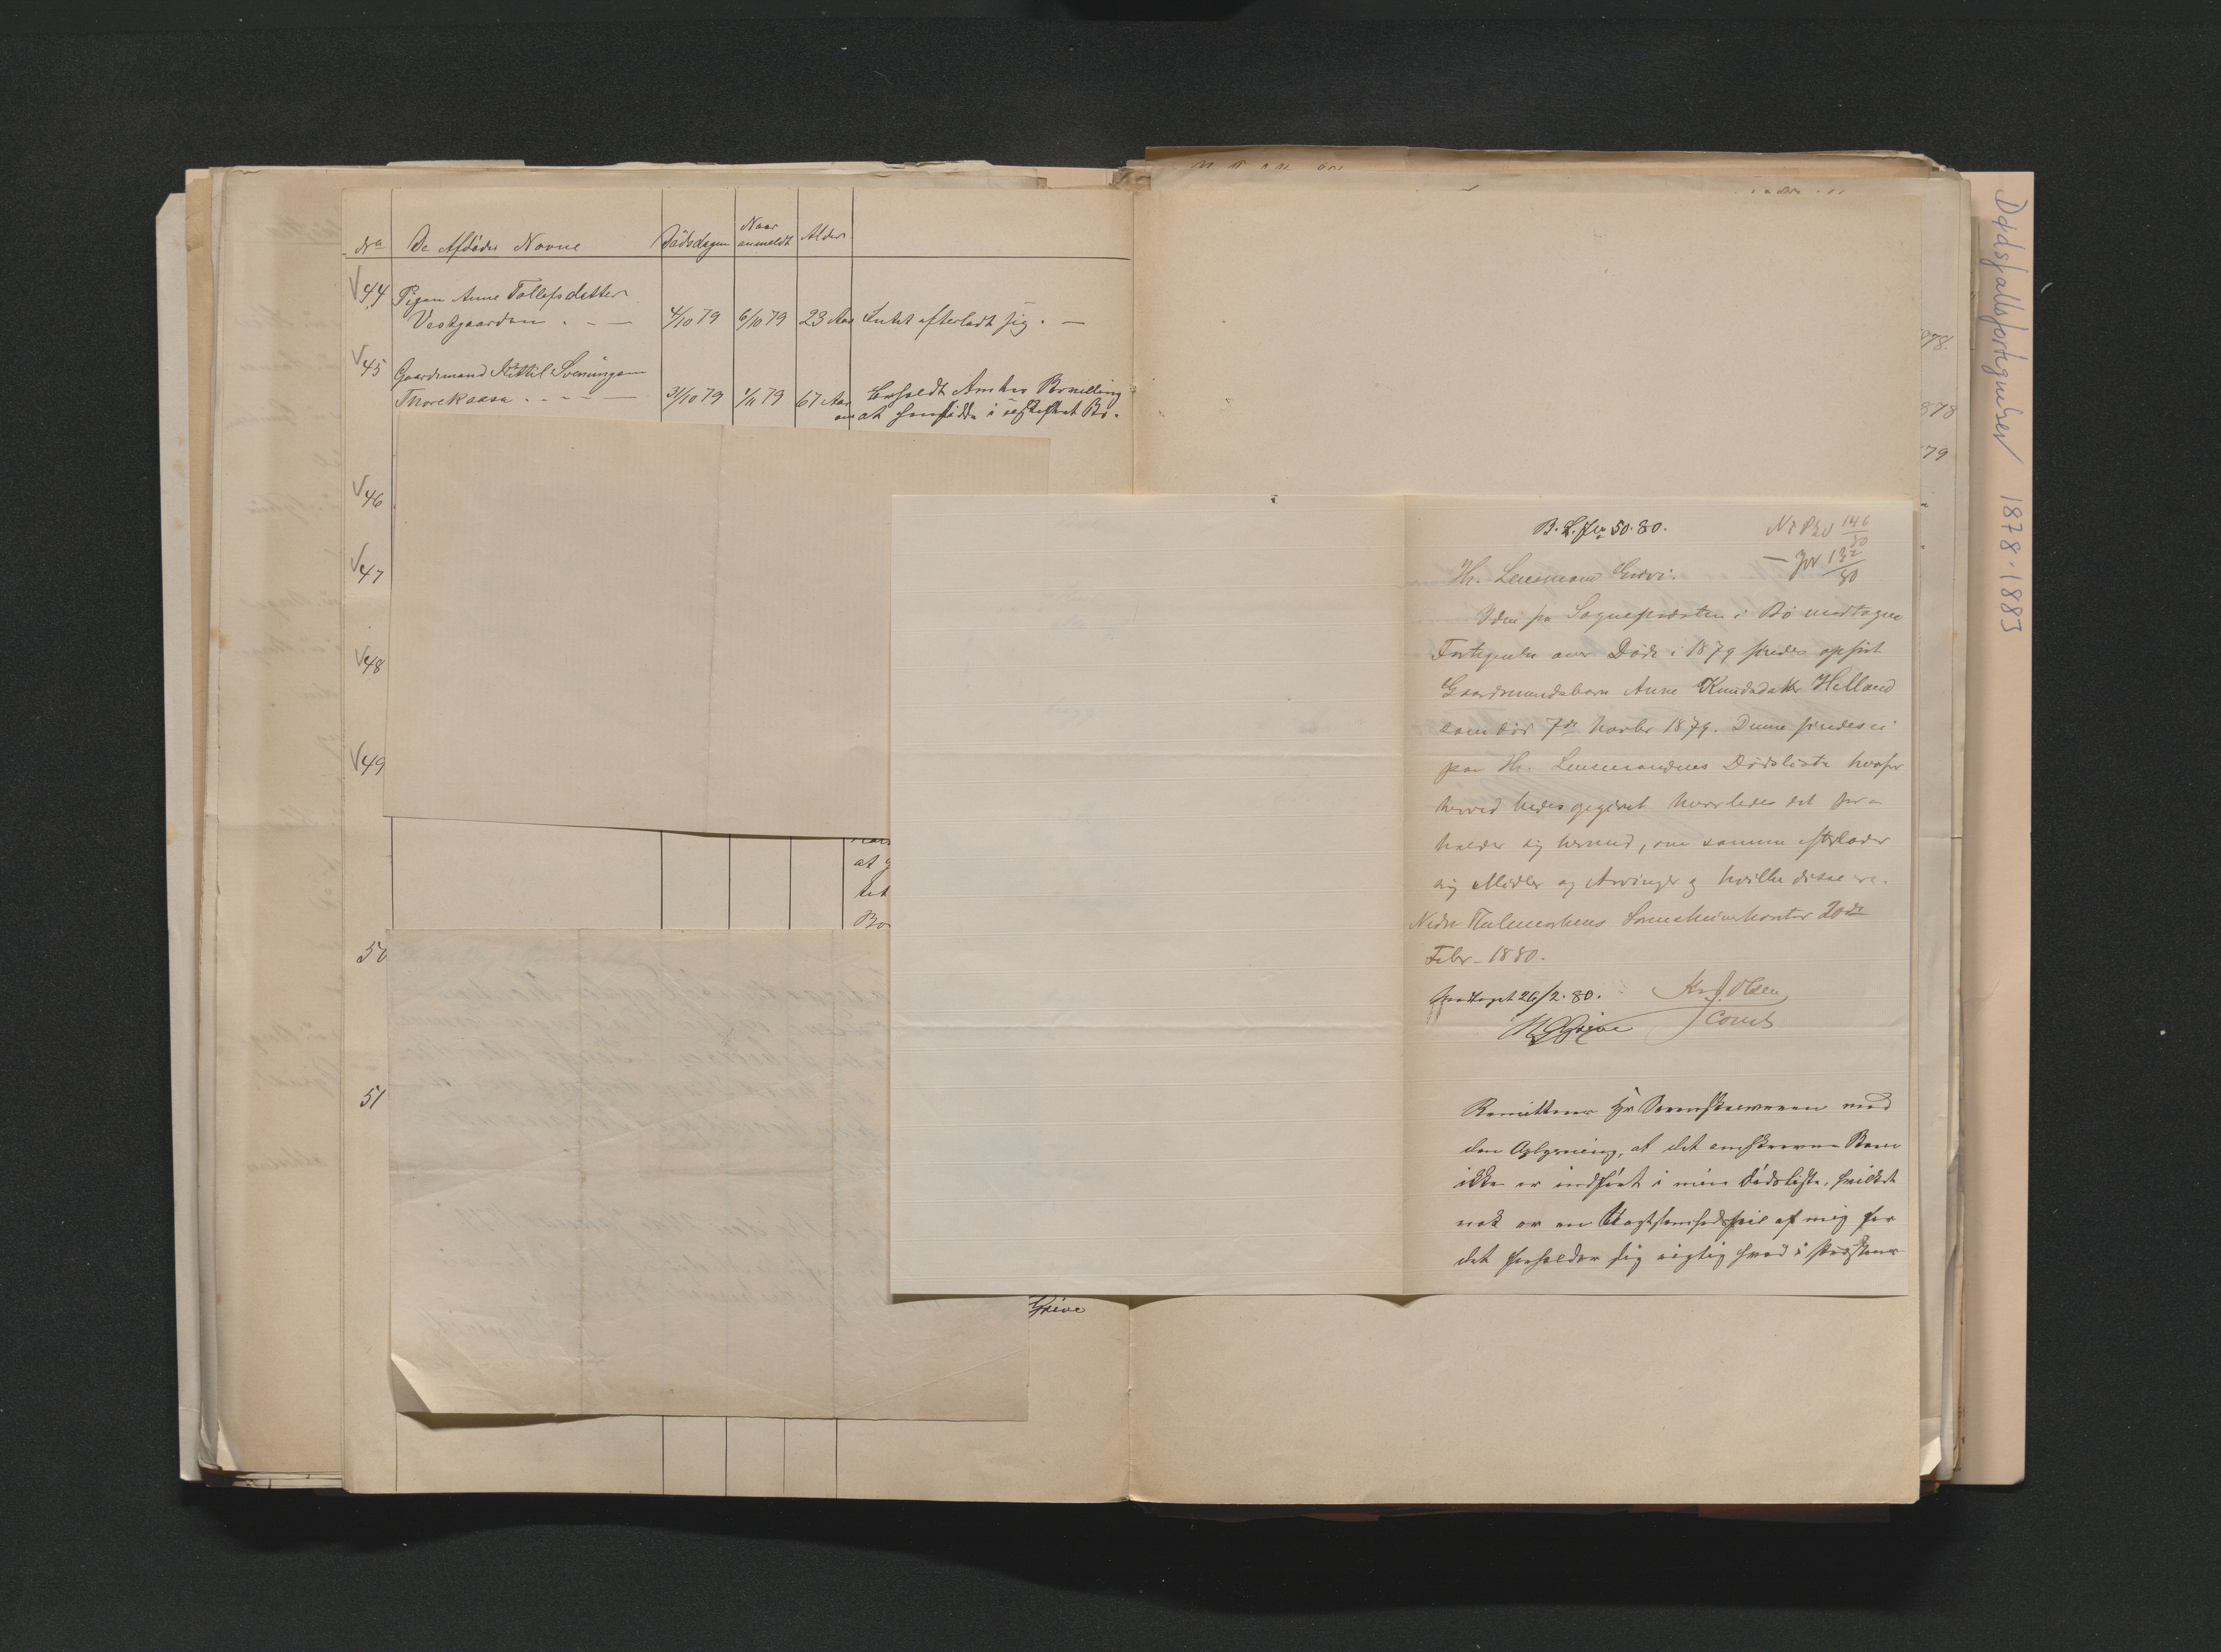 No De Afdødes Navne Dødsdagen Naar anmeldt Alder
44 Pigen Anne Tollefsdatter
Vestgaarden . - — 4/10 79 6/10 79 23 Aar Intet efterladt sig. —
45 Gaardmand Kittil Sveningsen
Thorekaasa - - - - — 31/10 79 1/11 79 67 Aar Erholdt Amtes Bevilling
at hensidde i uskiftet Bo.
46
47
48
49
at
tet
Bo
50
51
Greve
B. L. Jr 50. 80.
146
80
Jr 132
80
Hr. Lensmand
I den fra Sognepræsten i Bø modtagne
Fortegnelse over Døde i 1879 findes opført
Gaardmandsbarn Anne Knudsdatter Helland
som døde 7de Novbr 1879. Denne findes ei
paa Hr. Lensmandens Dødsliste hvorfor
herved bedes opgivet hvorledes det for-
holder sig hermed, om samme efterlader
sig Midler og Arvinger og hvilke disse ere.
Nedre Thelemarkens Sorenskriverkontor 20de
Febr. 1880.
Modtaget 26/2. 80. Kr. J. Olsen
const
Greve
Remitteres Hr Sorenskriveren med
den Oplysning, at det omskrevne Barn
ikke er indført i min Dødsliste, hvilket
nok er en Uagtsomhedsfeil af mig for
det forholder sig rigtig hvad i Præstens
878
878
79
Dødsfallsfortegnelser 1878-1883